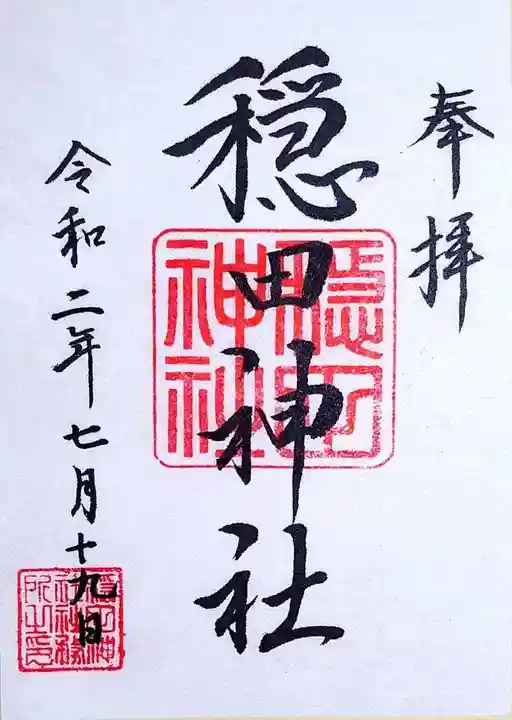 奉拝
穏田神社
穏田神社
令和二年七月十九日